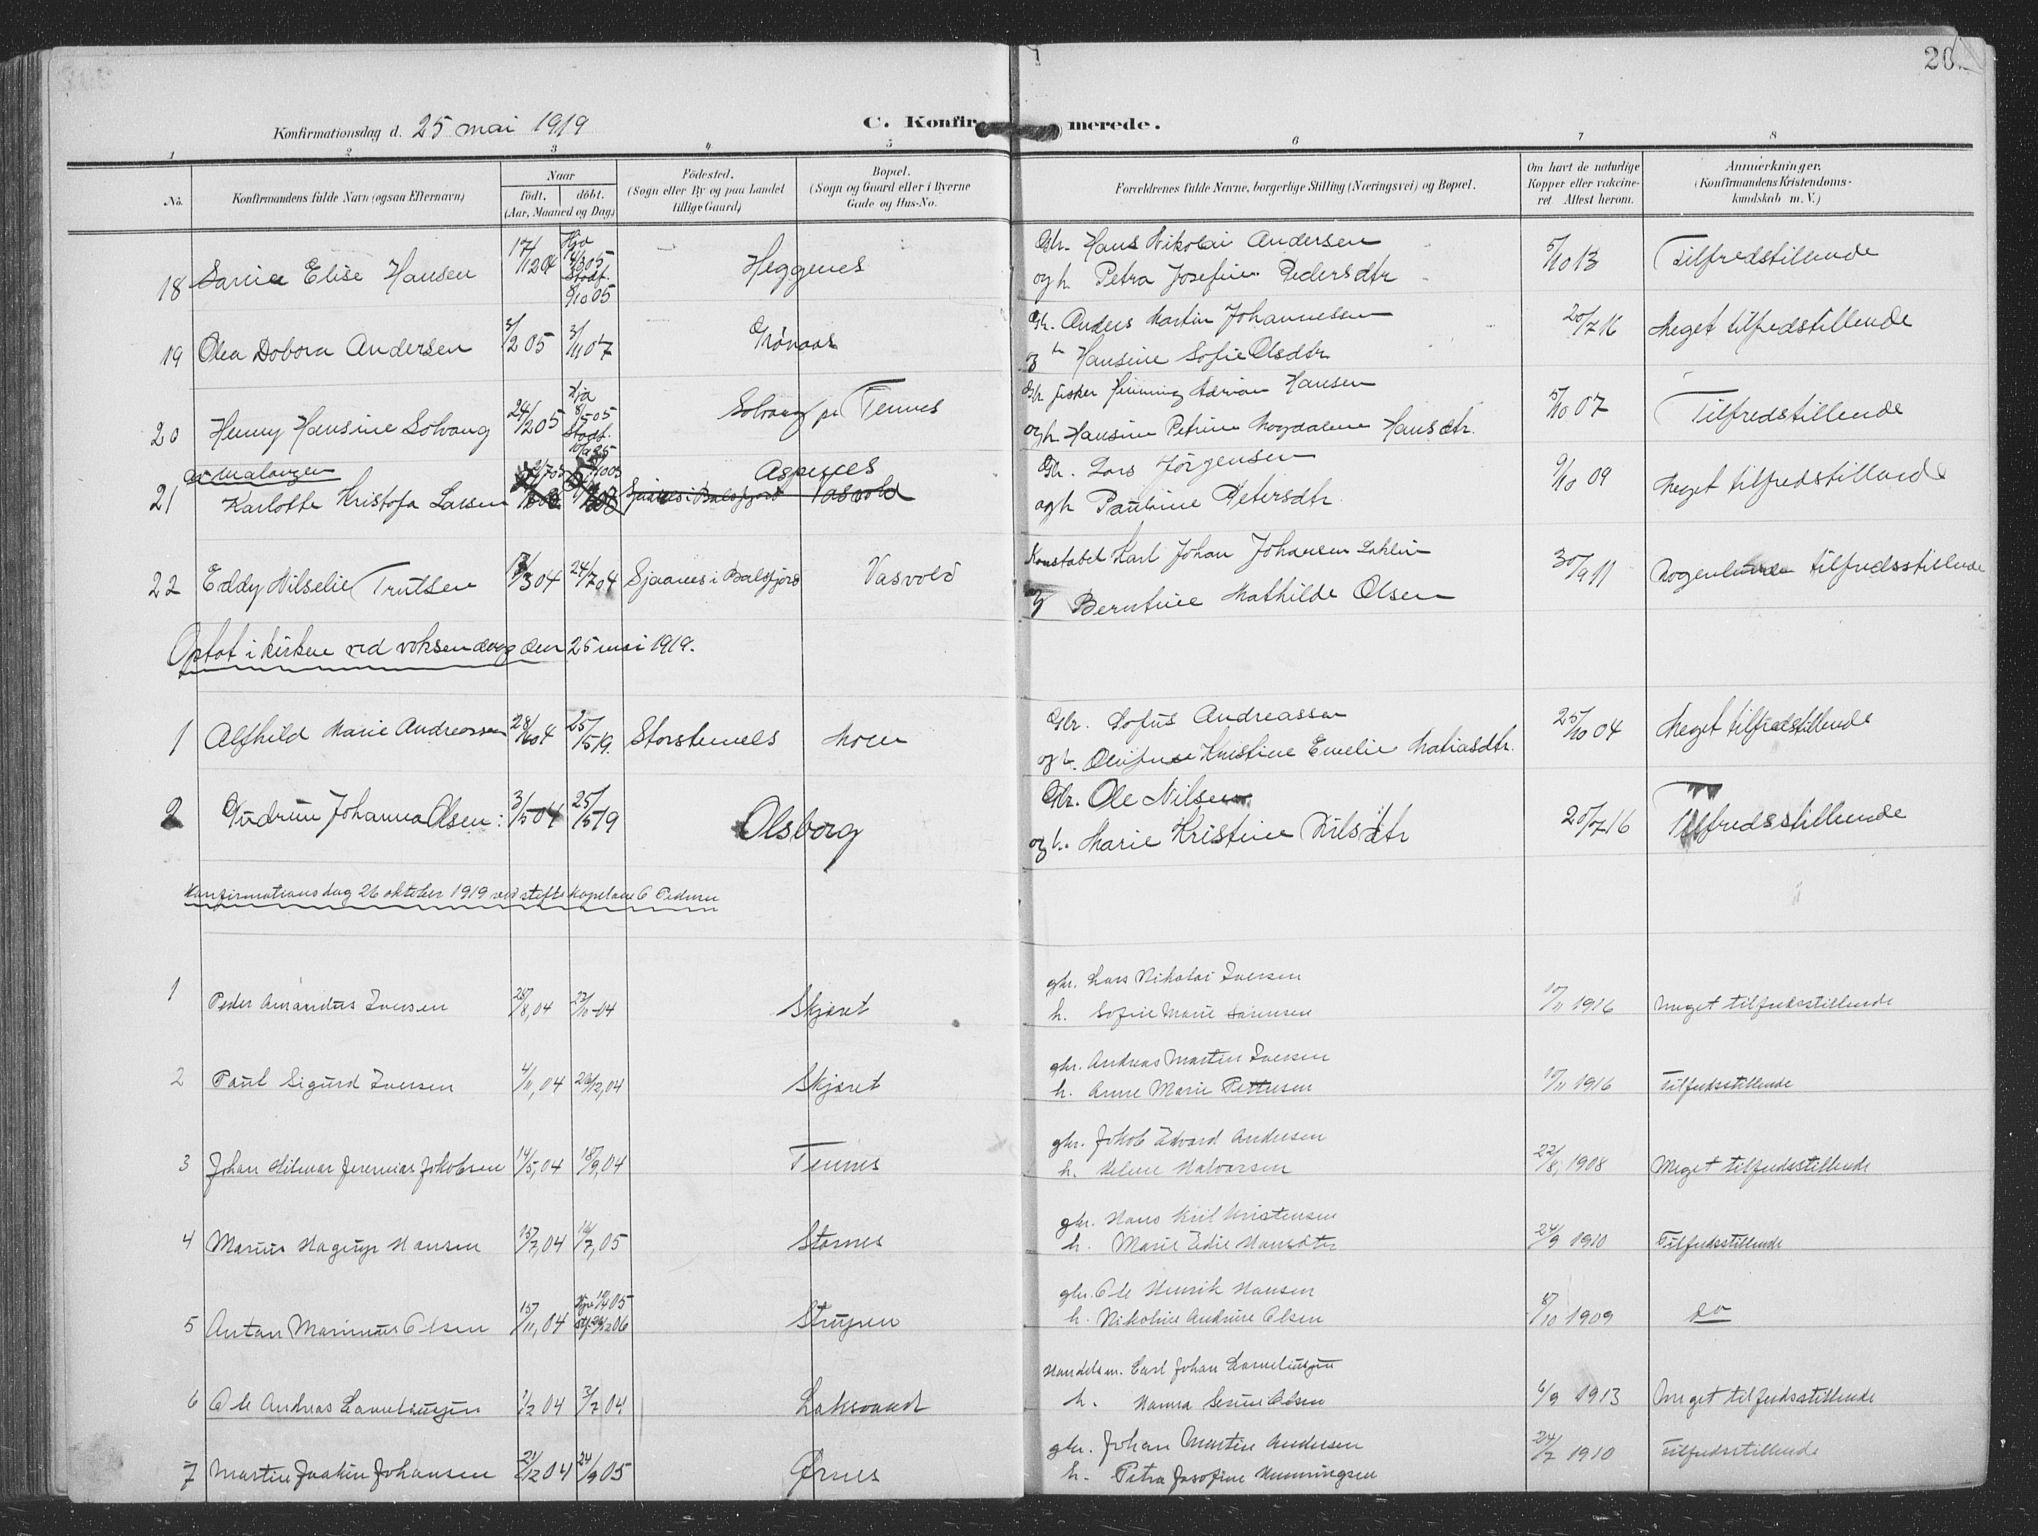 20
Konfirmationsdag d. 25 mai 1919
C. Konfirmerede.
1 2 3 4 5 6 7 8
No.
Konfirmandens fulde Navn (ogsaa Efternavn)
Naar
födt. döbt.
(Aar, Maaned og Dag)
Födested.
(Sogn eller By og paa Landet
tillige Gaard)
Bopæl.
(Sogn og Gaard eller i Byerne
Gade og Hus-No.
Forældrenes fulde Navne, borgerlige Stilling (Næringsvei) og Bopæl.
Om havt de naturlige
Kopper eller vakcine-
ret Attest herom.
Anmærkninger.
(Konfirmandens Kristendoms-
kundskab m. V.)
18 Elise Hansen 17/12 04 Hja 05 Stadf. 05 Heggenes Gbr. Hans Nikolai Andersen 5/10 13 Tilfredstillende
og h Petra Josefine Pedersdtr
19 Olea Dobora Andersen 3/2 05 3/11 07 Grønaas Gbr. Anders Martin Johannessen 20/7 16 Meget tilfredstillende
Hansine Sofie Olsdtr
20 Henny Hansine Solvang 24/2 05 Hja 8/5 05 Stadf. Solvang pr Tennes Gbr fisker Henning Adrian Hansen 5/10 07 Tilfredstillende
og h Hansine Petrine Magdalene Hansdtr.
av Malangen
21 Karlotte Kristofa Larsen Sjaanes i Balsfjord Aspenes Vasvold Gbr. Lars Jørgensen 9/10 09 Meget tilfredstillende
og h Pauline Petersdtr
22 Eddy Nilselie Trulsen 13/3 04 24/7 04 Sjaanes i Balsfjord Vasvold Konstabel Karl Johan Johansen 30/9 11 Nogenlunde tilfredsstillende
Berntine Mathilde Olsen
Optat i kirken ved voksendaap den 25 mai 1919.
1 Alfhild Marie Andreassen 28/10 04 25/5 19. Storstennes Moen Gbr. Lofus Andreassen 25/10 04 Meget tilfredstillende
og h. Kristine Emelie Matiasdtr.
2 Gudrun Johanna Olsen 3/5 04 25/5 19 Olsborg Gbr. Ole Nilsen 20/7 16 Tilfredsstillende
og h. Marie Kristine Nilsdtr
Konfirmationsdag 26 oktober 1919 ved stiftskapelane O Pedersen
1 Peder Amandus Iversen 28/8, 04 27/11 04 Skjæret gbr. Lars Nikolai Iversen 10/11 1916 Meget tilfredsstillende
h. Sofie Marie Sørensen
2 Paul Sigurd Iversen 4/11, 04 26/12, 04 Skjæret gbr. Andreas Martin Iversen 10/11 1916 Tilfredsstillende
h. Anne Marie Pettersen
3 Johan Hilmar Jeremias Jakobsen 14/5, 04 18/9, 04 Tennes gbr. Jakob Edvard Andersen 22/8, 1908 Meget tilfredsstillende
h. Helene Halvorsen
4 Marius Hagerup Hansen 15/7, 04 16/7, 05 Stornes gbr. Hans Kristensen 24/9 1910 Tilfredsstillende
h. Marie Edie Hansdtr
5 Anton Marinius Olsen 15/11, 04 05 06 Strupen gbr. Ole Henrik Hansen 8/10 1909 do
h. Nikoline Andrine Olsen
6 Ole Andreas Korneliussen 1/2 04 3/7 04 Laksvandt Handelsm. Carl Johan Korneliussen 6/9 1913 Meget tilfredsstillende
h. Hanna Olsen
7 Martin Joakin Johansen 21/12 04 24/9 05 Ørnes gbr. Johan Martin Andersen 24/7 1910 Tilfredsstillende
h. Petra Josofine Henningsen